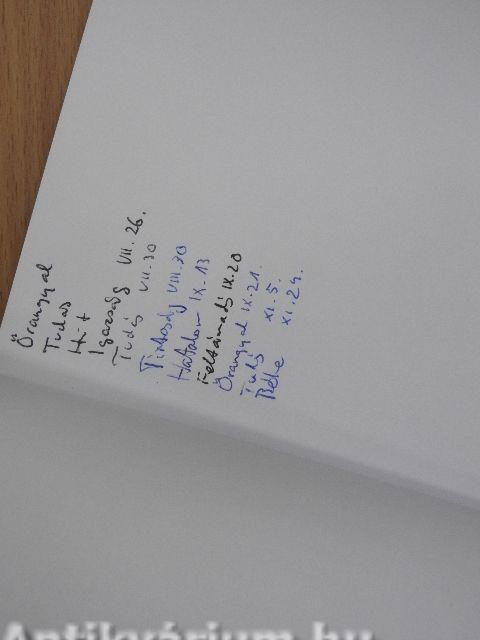 Őrangyal
Tudás
Hit
Igazság VII. 26.
Tudás VII. 30
Tisztaság VIII. 30
Hatalom IX. 13
Feltámadás IX. 20
Őrangyal IX. 21.
Tudás XI. 5.
Béke XI. 24.
Antikvárium.hu